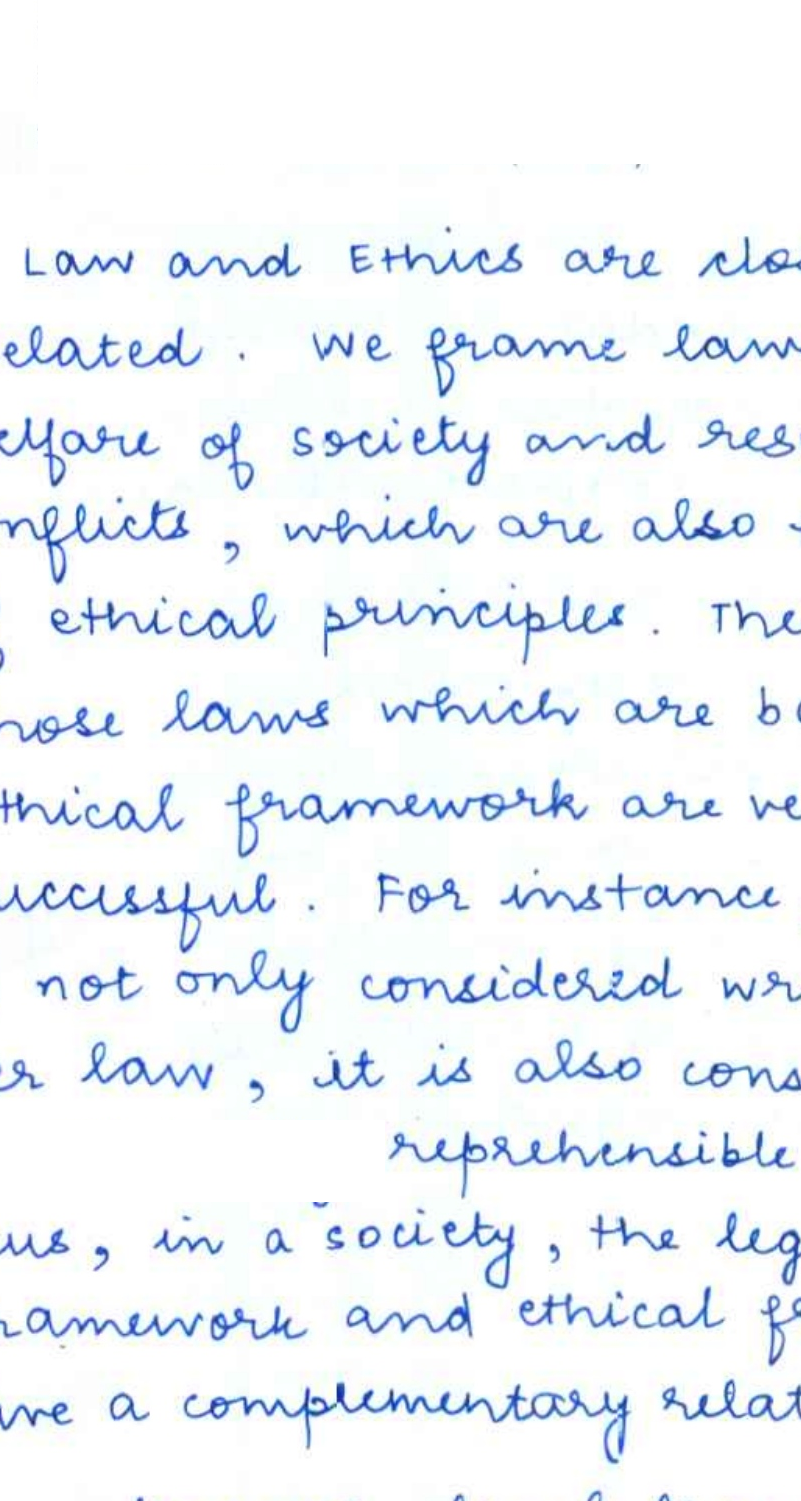 Law and Ethics are clo
elated. We frame law
elfare of society and res
nflicts, which are also
ethical principles. The
hose laws which are b
thical framework are ve
uccessful. For instance
not only considered wr
er law, it is also cons
reprehensible
us, in a society, the leg
ramework and ethical f
ve a complementary relat